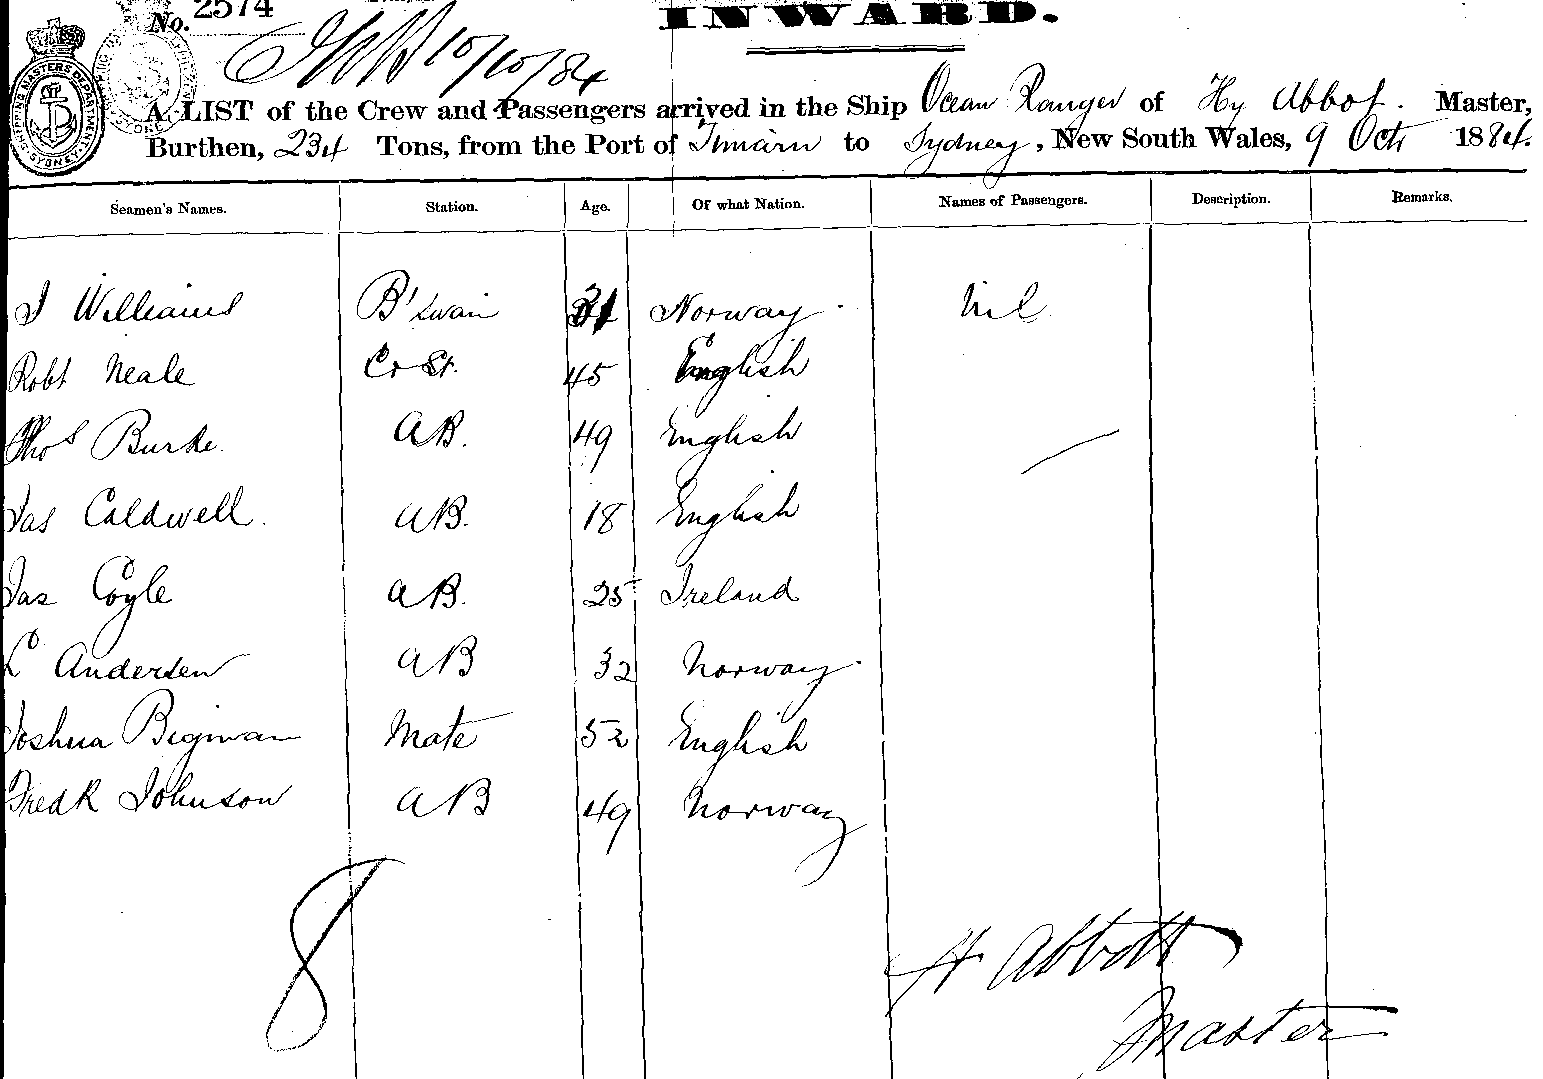 No. 2574
INWARD.
10/10/84
A LIST of the Crew and Passengers arrived in the Ship Ocean Ranger of Hy Abbot. Master,
Burthen, 234 Tons, from the Port of to Sydney, New South Wales, 9 Oct 1884.
Seamen's Names. Station. Age. Of what Nation. Names of Passengers. Description. Remarks.
J Williams B'swain 31 Norway Nil
Robt Neale Ck St. 45 English
Thos Burke AB. 49 English
Jas Caldwell. AB. 18 English
Jas Coyle AB. 25 Ireland
C Andersen AB 32 Norway
Joshua Bigman Mate 52 English
Fredk Johnson AB 49 Norway
8
H Abbott
Master
SHIPPING MASTERS DEPARTMENT SYDNEY